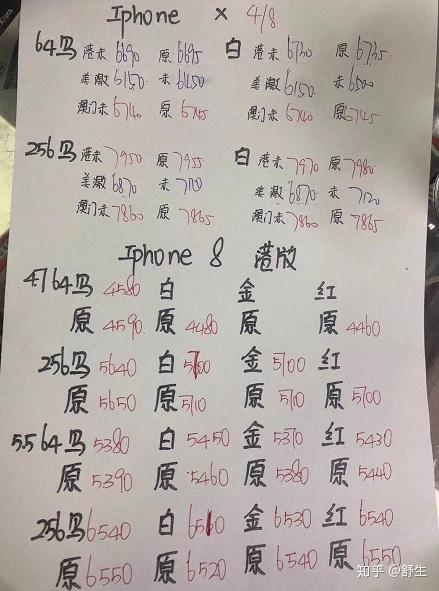 Iphone X 4/8
64 马 港未 6690 原 6695 白 港未 6730 原 6735
美激 6150 未 6450 美激 6150 未 6500
澳门未 6740 原 6745 澳门未 6740 原 6745
256 马 港未 7950 原 7955 白 港未 7970 原 7980
美激 6870 未 7120 美激 6870 未 7120
澳门未 7860 原 7865 澳门未 7860 原 7865
Iphone 8 港版
4.7 64 马 4580 白 金 红
原 4590 原 4480 原 原 4460
256 马 5640 白 5100 金 5100 红
原 5650 原 5110 原 5110 原 5100
5.5 64 马 5380 白 5450 金 5370 红 5430
原 5390 原 5460 原 5380 原 5440
256 马 6540 白 6510 金 6530 红 6540
原 6550 原 6520 原 6540 原 6550
知乎 @舒生